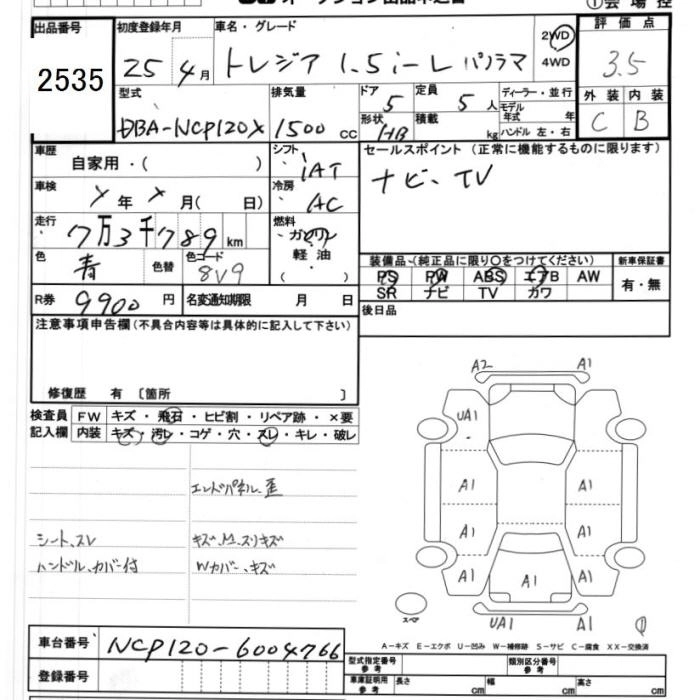 ①会場控
出品番号
2535
初度登録年月
25年4月
車名・グレード
トレジア 1.5 i-L パノラマ
2WD
4WD
評価点
3.5
外装 内装
C B
型式
DBA-NCP120X
排気量
1500 cc
ドア
5
定員
5人
形状
HB
積載
kg
ディーラー・並行
モデル
年式 年
ハンドル 左・右
車歴
自家用・( )
シフト
IAT
セールスポイント(正常に機能するものに限ります)
ナビ、TV
車検
年 月( 日)
冷房
AC
走行
7万3千789km
燃料
ガソリン
軽油
( )
色
青
色替
色コード
8V9
装備品(純正品に限り○をつけてください)
PS PW ABS エアB AW
SR ナビ TV カワ
新車保証書
有・無
R券
9900円
名変通知期限 月 日
後日品
注意事項申告欄(不具合内容等は具体的に記入して下さい)
修復歴 有〔箇所 〕
検査員
記入欄
FW キズ・飛石・ヒビ割・リペア跡・×要
内装 キズ・汚レ・コゲ・穴・スレ・キレ・破レ
エンドパネル、歪
シート、スレ
キズ、M、スリキズ
ハンドル、カバー付
Wカバー、キズ
A2 A1
UA1 A1
A1 A1
A1 A1
A1 A1 A1
スペア
UA1 A1
A-キズ E-エクボ U-凹み W-補修跡 S-サビ C-腐食 XX-交換済
車台番号
NCP120-6004766
登録番号
型式指定番号
参考
類別区分番号
参考
車庫証明用
参考
長さ cm 幅 cm 高さ cm